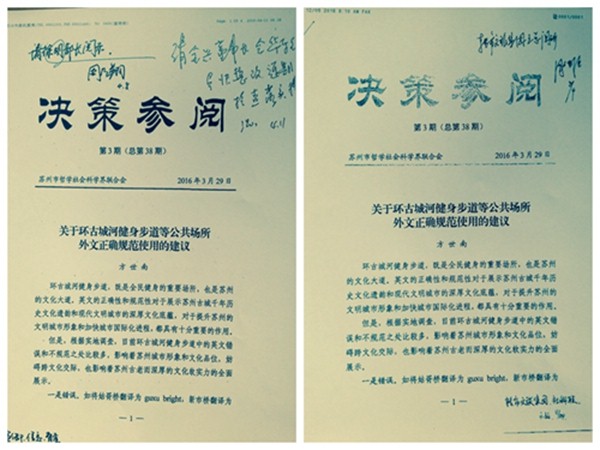 决策参阅
第3期（总第38期）
苏州市哲学社会科学界联合会 2016年3月29日
关于环古城河健身步道等公共场所
外文正确规范使用的建议
方世南
环古城河健身步道，既是全民健身的重要场所，也是苏州
的文化大道，英文的正确性和规范性对于展示苏州古城千年历
史文化遗韵和现代文明城市的深厚文化底蕴，对于提升苏州的
文明城市形象和加快城市国际化进程，都具有十分重要的作用。
但是，根据实地调查，目前环古城河健身步道中的英文错
误和不规范之处比较多，影响着苏州城市形象和文化品位，妨
碍跨文化交际，也影响着苏州古老而深厚的文化软实力的全面
展示。
一是错误。如将姑胥桥翻译为 guxu bright，新市桥翻译为
— 1 —
决策参阅
第3期（总第38期）
苏州市哲学社会科学界联合会 2016年3月29日
关于环古城河健身步道等公共场所
外文正确规范使用的建议
方世南
环古城河健身步道，既是全民健身的重要场所，也是苏州
的文化大道，英文的正确性和规范性对于展示苏州古城千年历
史文化遗韵和现代文明城市的深厚文化底蕴，对于提升苏州的
文明城市形象和加快城市国际化进程，都具有十分重要的作用。
但是，根据实地调查，目前环古城河健身步道中的英文错
误和不规范之处比较多，影响着苏州城市形象和文化品位，妨
碍跨文化交际，也影响着苏州古老而深厚的文化软实力的全面
展示。
一是错误。如将姑胥桥翻译为 guxu bright，新市桥翻译为
— 1 —